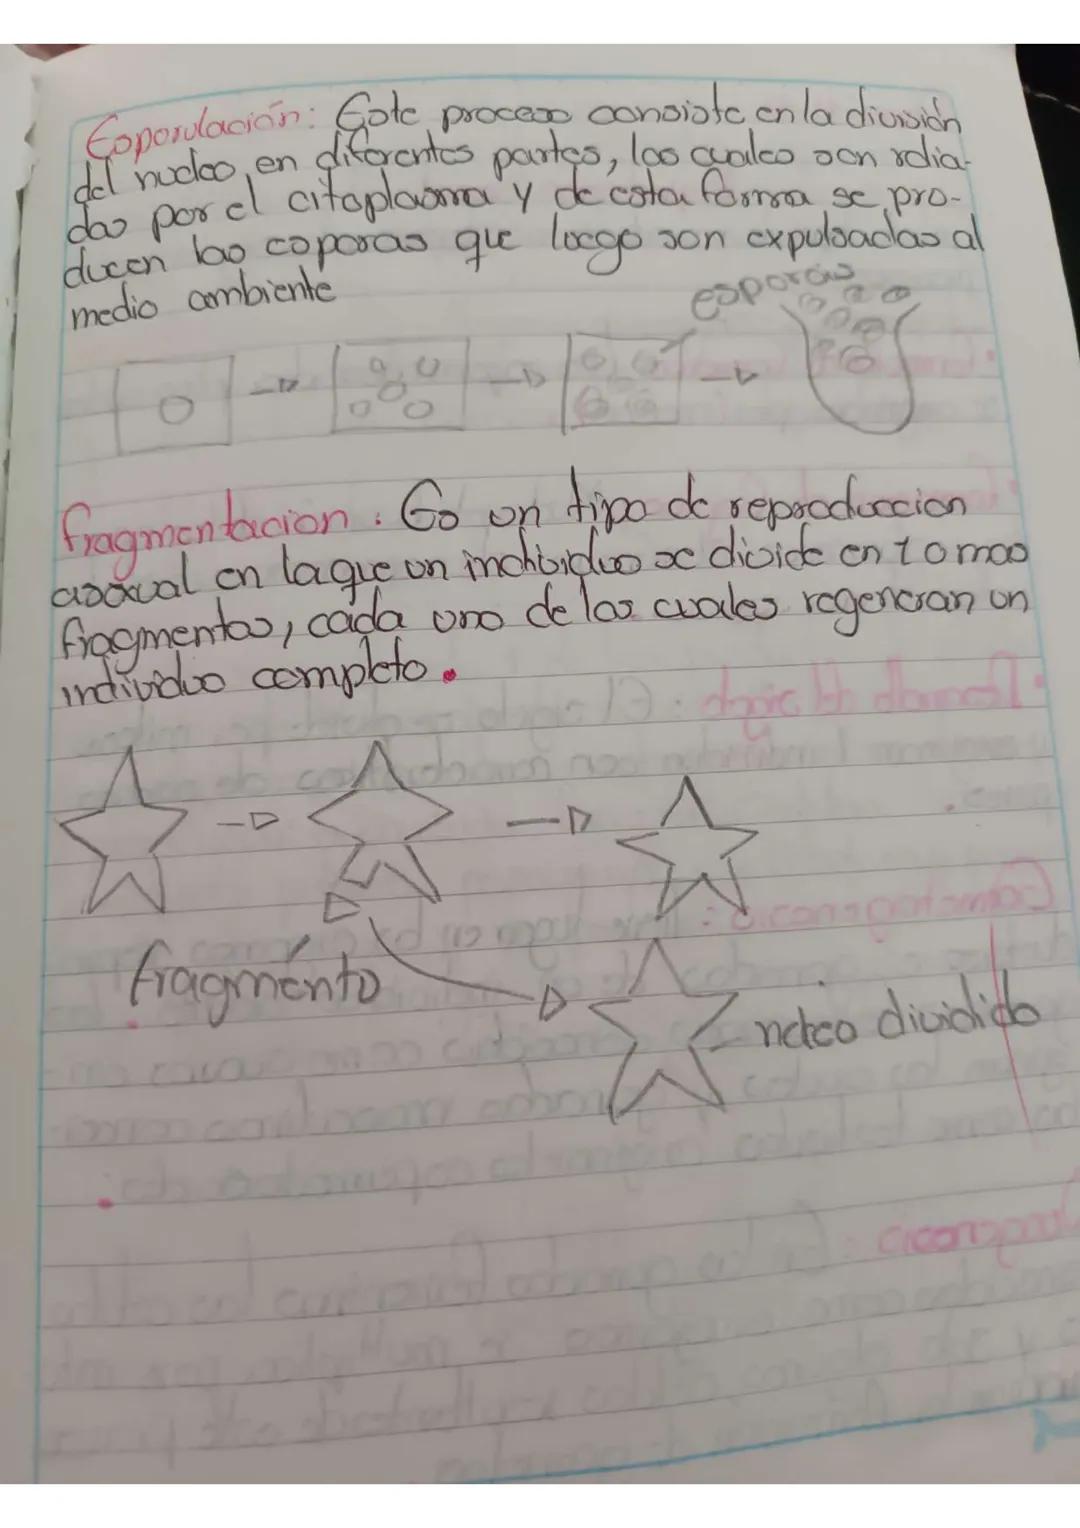 Esporulación: Este proceso consiste en la división
del nucleo, en diferentes partes, las cuales son rdia-
das por el citoplasma y de esta forma se pro-
ducen las esporas que luego son expulsadas al
medio ambiente
esporas
fragmentacion: Es un tipo de reproduccion
asexual en la que un individuo se divide en 1 o mas
fragmentos, cada uno de los cuales regeneran un
individuo completo.
fragménto
dividido